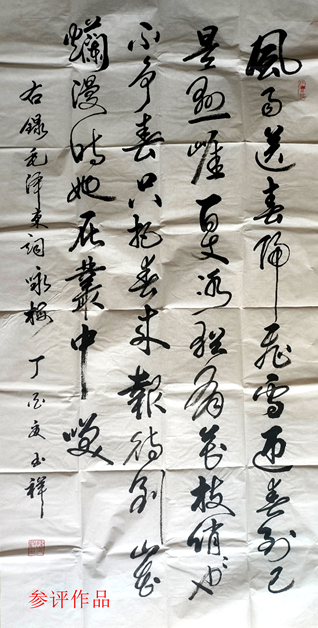 風雨送春歸飛雪迎春到已
是懸崖百丈冰猶有花枝俏也
不爭春只把春來報待到山花
爛漫時她在叢中笑
右錄毛澤東詞咏梅 丁酉夏玉祥
参评作品